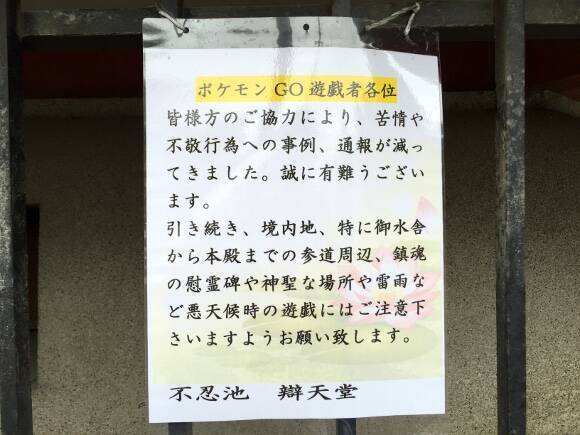 ポケモンGO遊戯者各位
皆様方のご協力により、苦情や
不敬行為への事例、通報が減っ
てきました。誠に有難うござい
ます。
引き続き、境内地、特に御水舎
から本殿までの参道周辺、鎮魂
の慰霊碑や神聖な場所や雷雨な
ど悪天候時の遊戯にはご注意下
さいますようお願い致します。
不忍池 辯天堂